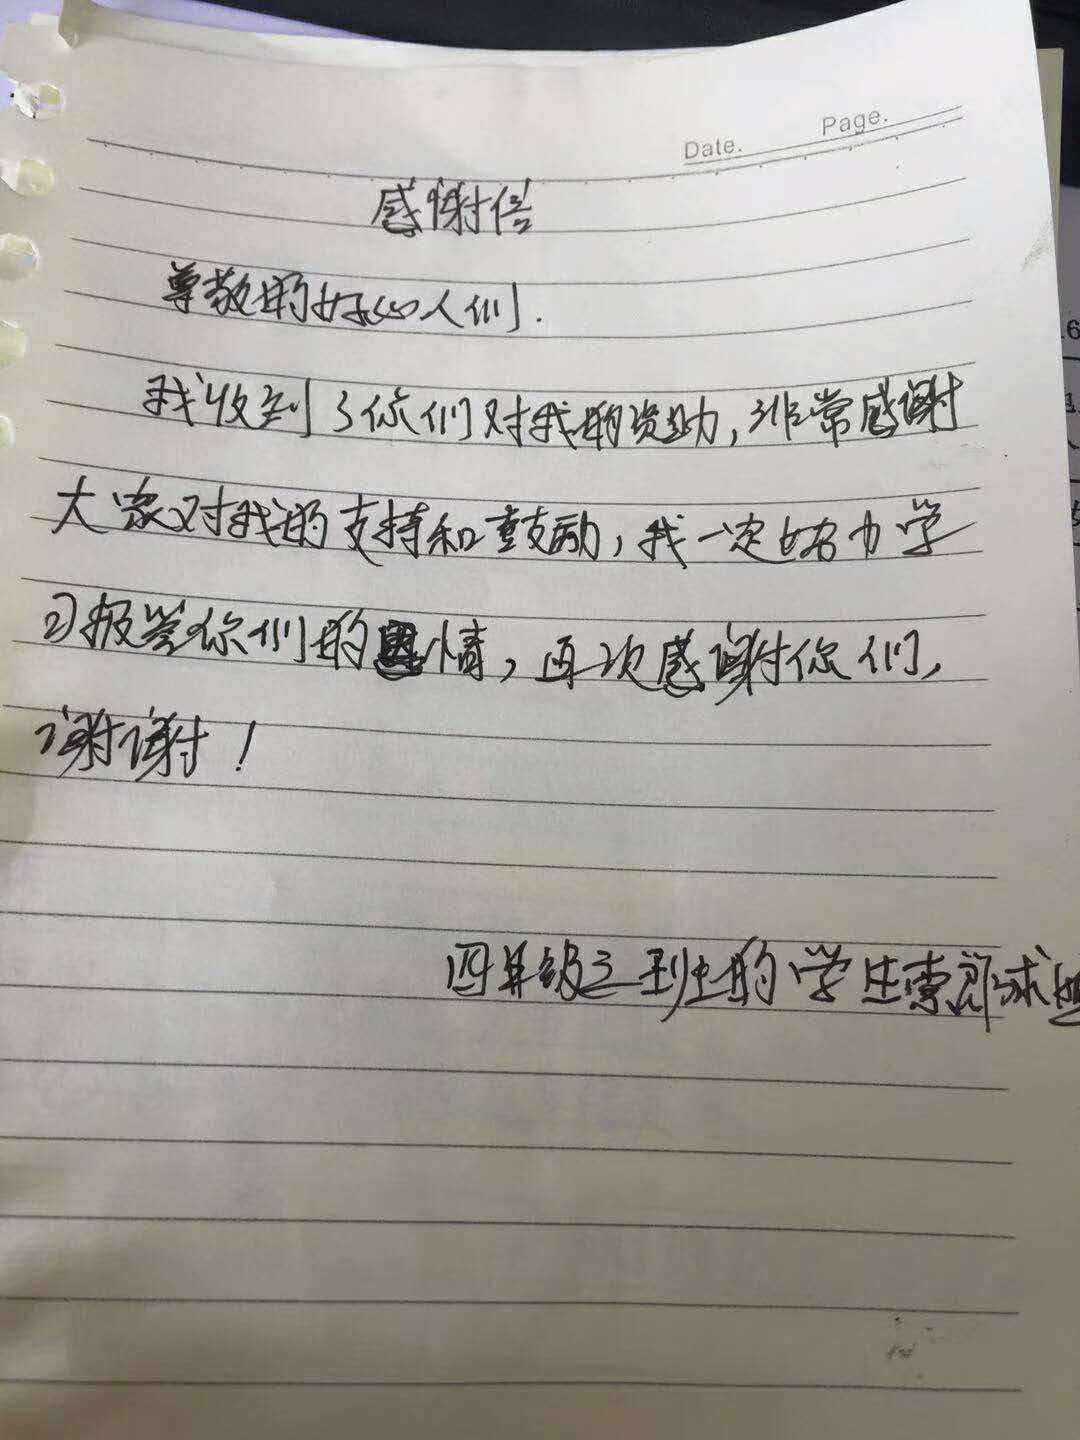 Date.
Page.
感谢信
尊敬的好心人们.
我收到了你们对我的资助,非常感谢
大家对我的支持和鼓励,我一定好好努力学
习报答你们的恩情,再次感谢你们,
谢谢!
四年级三班的学生索郎求